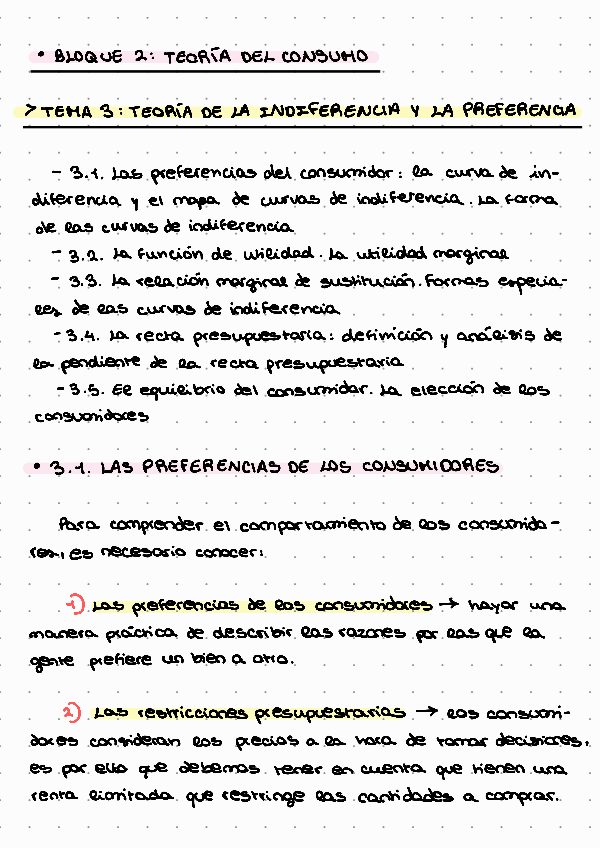 • BLOQUE 2: TEORÍA DEL CONSUMO
> TEMA 3: TEORÍA DE LA INDIFERENCIA Y LA PREFERENCIA
- 3.1. Las preferencias del consumidor: la curva de in-
diferencia y el mapa de curvas de indiferencia. La forma
de las curvas de indiferencia
- 3.2. La función de utilidad. La utilidad marginal
- 3.3. La relación marginal de sustitución. Formas especia-
les de las curvas de indiferencia
- 3.4. La recta presupuestaria: definición y análisis de
la pendiente de la recta presupuestaria
- 3.5. El equilibrio del consumidor. La elección de los
consumidores
• 3.1. LAS PREFERENCIAS DE LOS CONSUMIDORES
Para comprender el comportamiento de los consumido-
res, es necesario conocer:
1) Las preferencias de los consumidores → hayar una
manera práctica de describir las razones por las que la
gente prefiere un bien a otro.
2) Las restricciones presupuestarias → los consumi-
dores consideran los precios a la hora de tomar decisiones,
es por ello que debemos tener en cuenta que tienen una
renta limitada que restringe las cantidades a comprar.